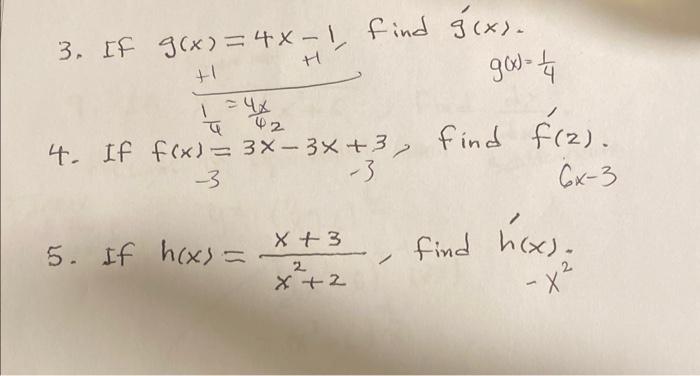 3. If g(x) = 4x - 1, find g'(x).
+1 +1 g(x) = 1/4
1/4 = 4x/4
2
4. If f(x) = 3x - 3x + 3, find f'(2).
-3 -3 6x-3
5. If h(x) = (x + 3)/(x² + 2), find h'(x).
-x²